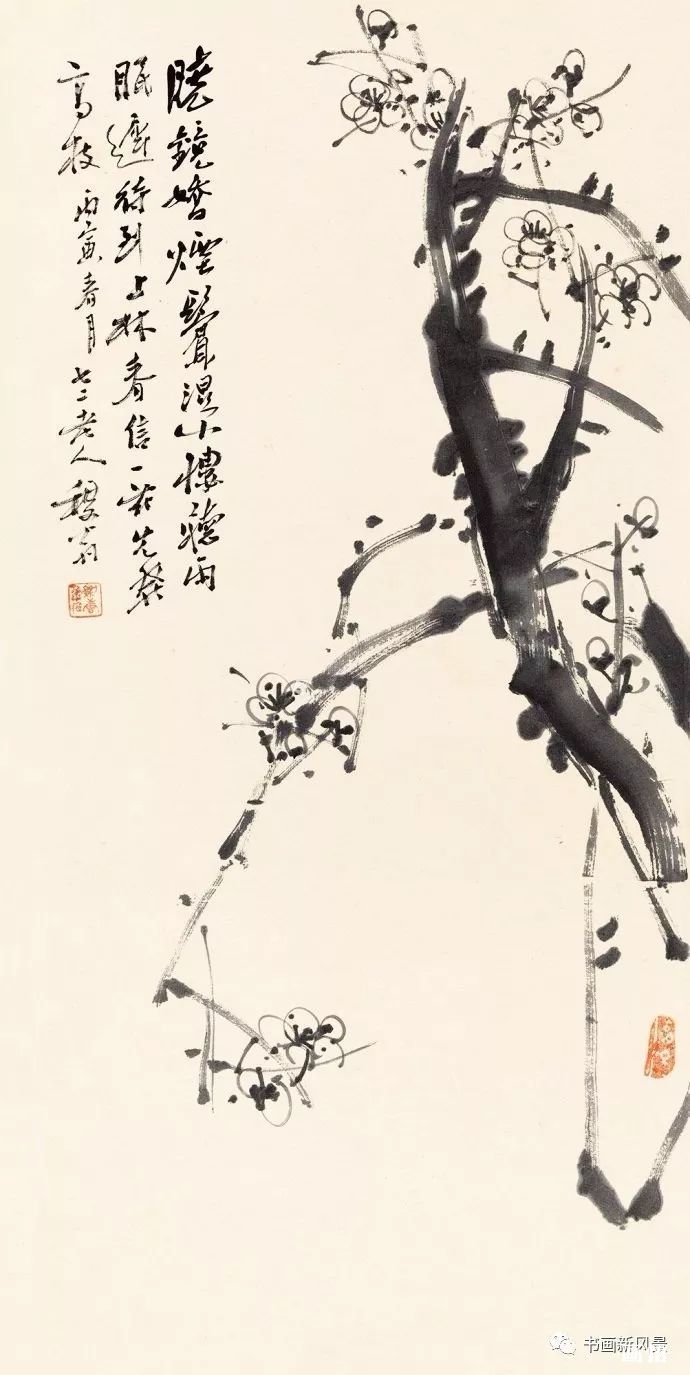 曉鏡嬌煙鬟濕小樓聽雨
眠遲待到上林春信一花先發
高枝 丙寅春月 七二老人稷翁
书画新风景